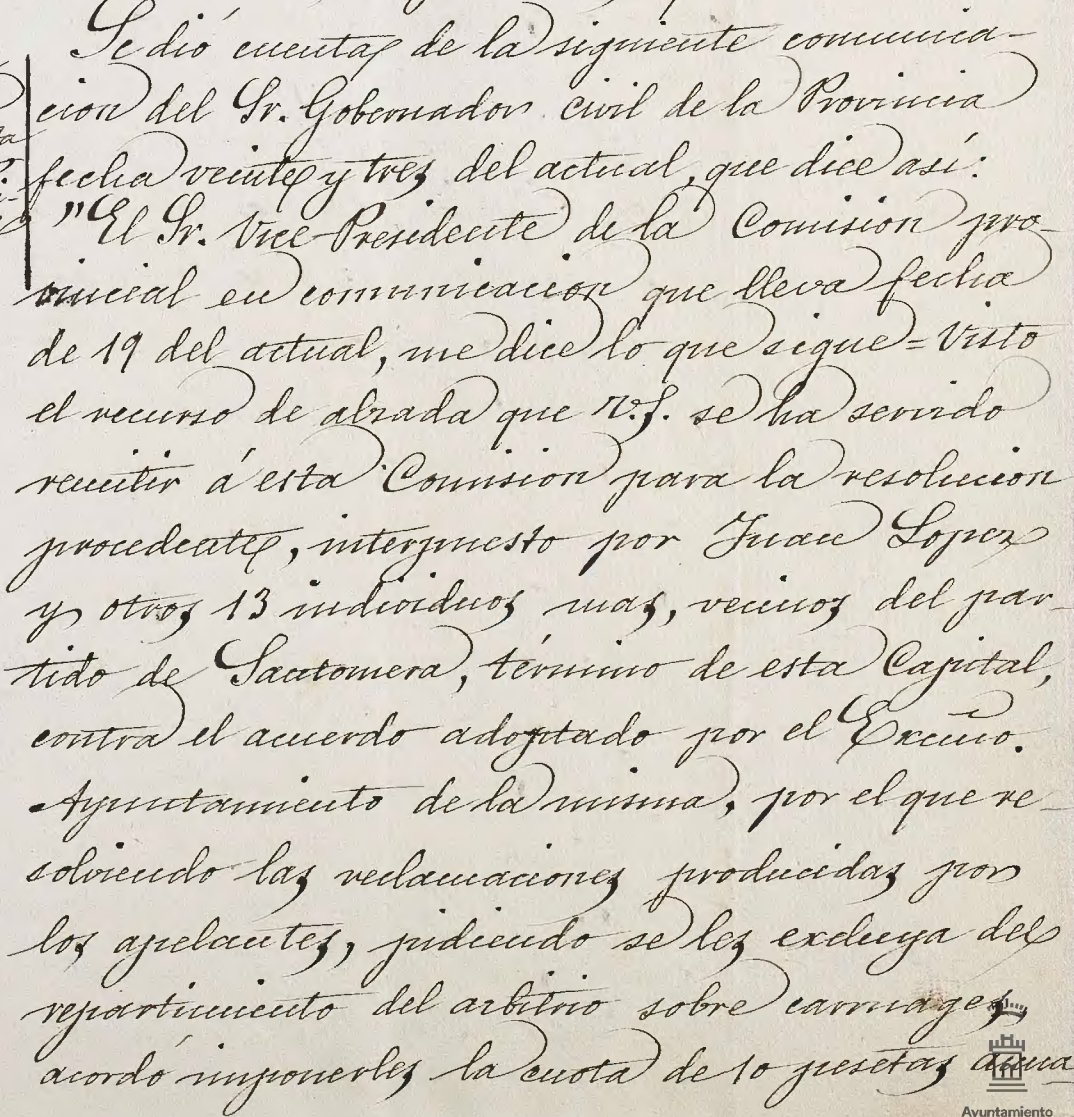 Se dió cuenta de la siguiente comunica-
cion del Sr. Gobernador civil de la Provincia
fecha veinte y tres del actual, que dice así:
"El Sr. Vice-Presidente de la Comision pro-
vincial en comunicacion que lleva fecha
de 19 del actual, me dice lo que sigue = Visto
el recurso de alzada que V.S. se ha servido
remitir á esta Comision para la resolucion
procedente, interpuesto por Juan Lopez
y otros 13 individuos mas, vecinos del par-
tido de Santomera, término de esta Capital,
contra el acuerdo adoptado por el Excmo.
Ayuntamiento de la misma, por el que re-
solviendo las reclamaciones producidas por
los apelantes, pidiendo se les excluya del
repartimiento del arbitrio sobre carruages,
acordó imponerles la cuota de 10 pesetas
Ayuntamiento